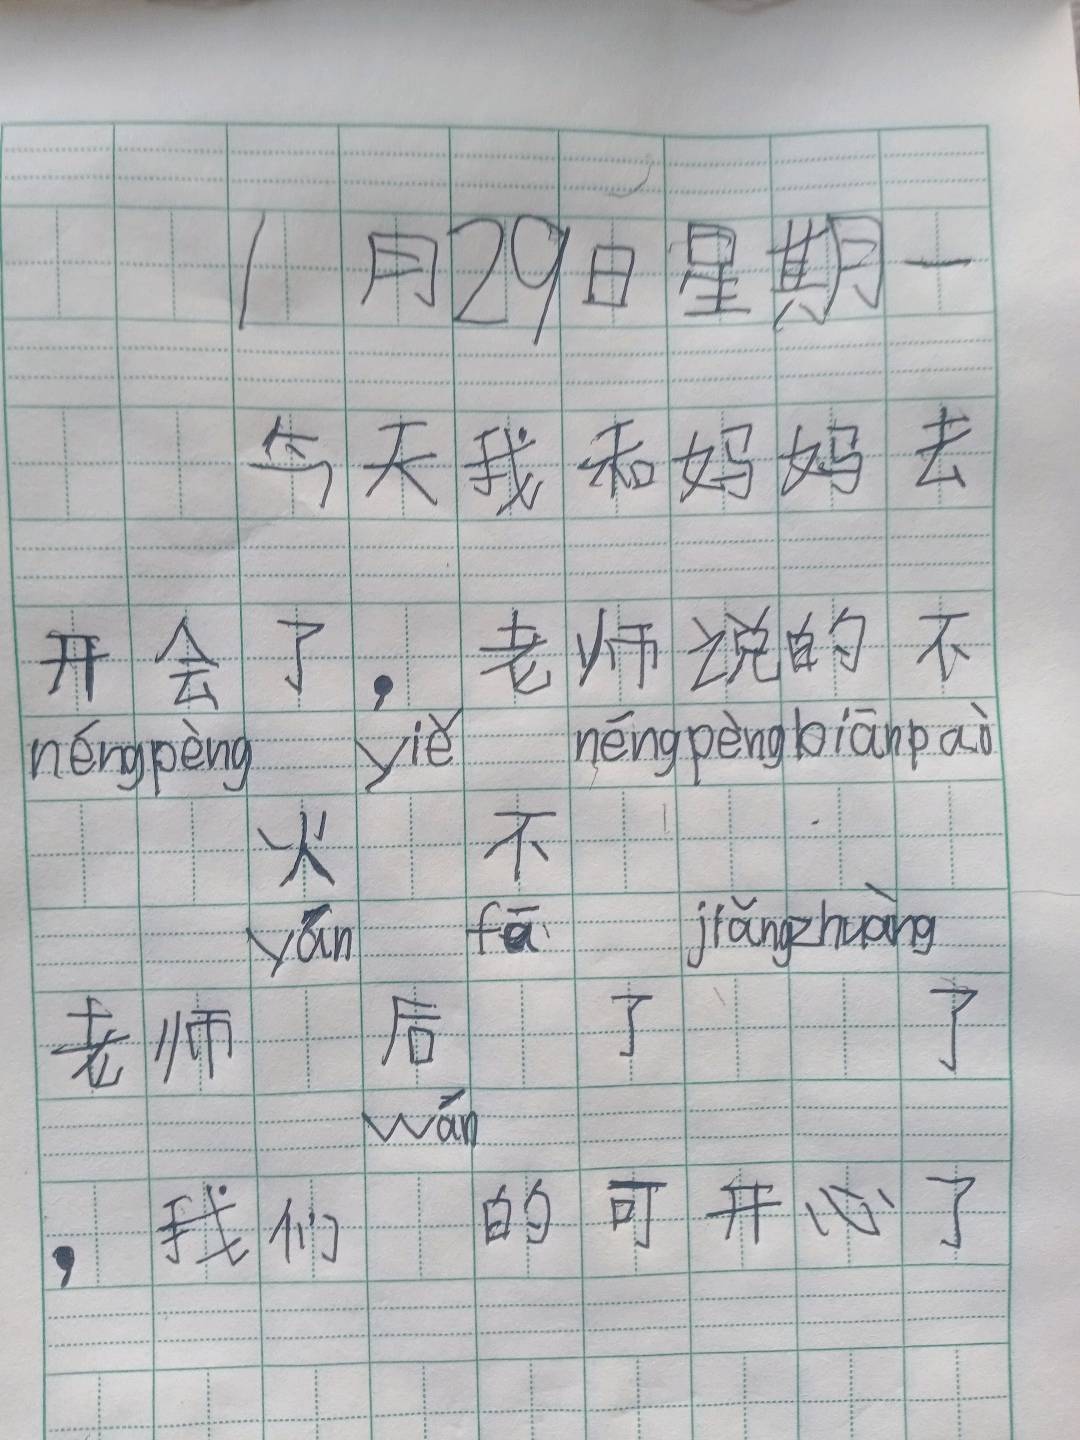 1月29日星期一
今天我和妈妈去
开会了，老师说的不
néngpèng yiě néngpèngbiānpaò
火 不
yān fā jiǎngzhuàng
老师 后 了 了
wán
，我们 的可开心了